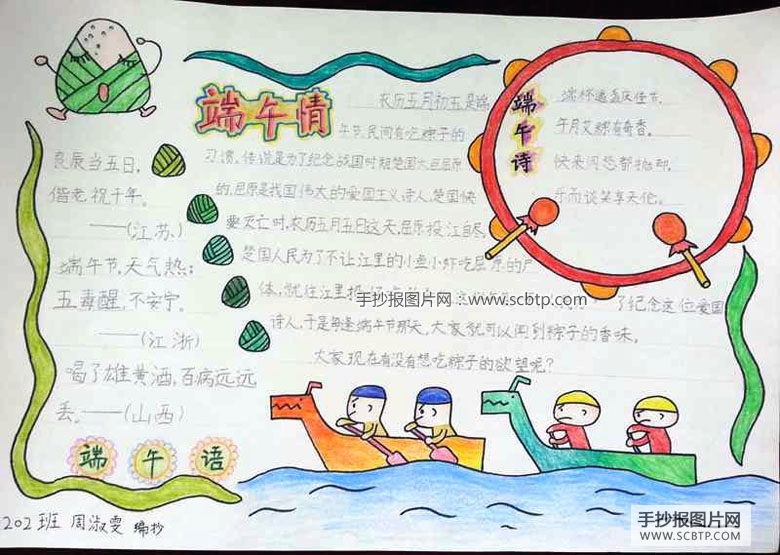 端午情
农历五月初五是端
午节,民间有吃粽子的
习惯,传说是为了纪念战国时期楚国大臣屈原
的,屈原是我国伟大的爱国主义诗人,楚国快
要灭亡时,农历五月五日这天,屈原投江自尽,
楚国人民为了不让江里的小鱼小虾吃屈原的尸
体,就往江里投
了纪念这位爱国
诗人,于是每逢端午节那天,大家就可以闻到粽子的香味。
大家现在有没有想吃粽子的欲望呢?
端午诗
端杯逢盏庆佳节,
午月艾粽有奇香。
快来阅尽都
乐而谈笑享天伦。
良辰当五日,
偕老祝千年。
——(江苏)
端午节,天气热;
五毒醒,不安宁。
——(江浙)
喝了雄黄酒,百病远远
丢。——(山西)
端午语
202班 周淑雯 编抄
手抄报图片网:www.scbtp.com
手抄报图片网
WWW.SCBTP.COM